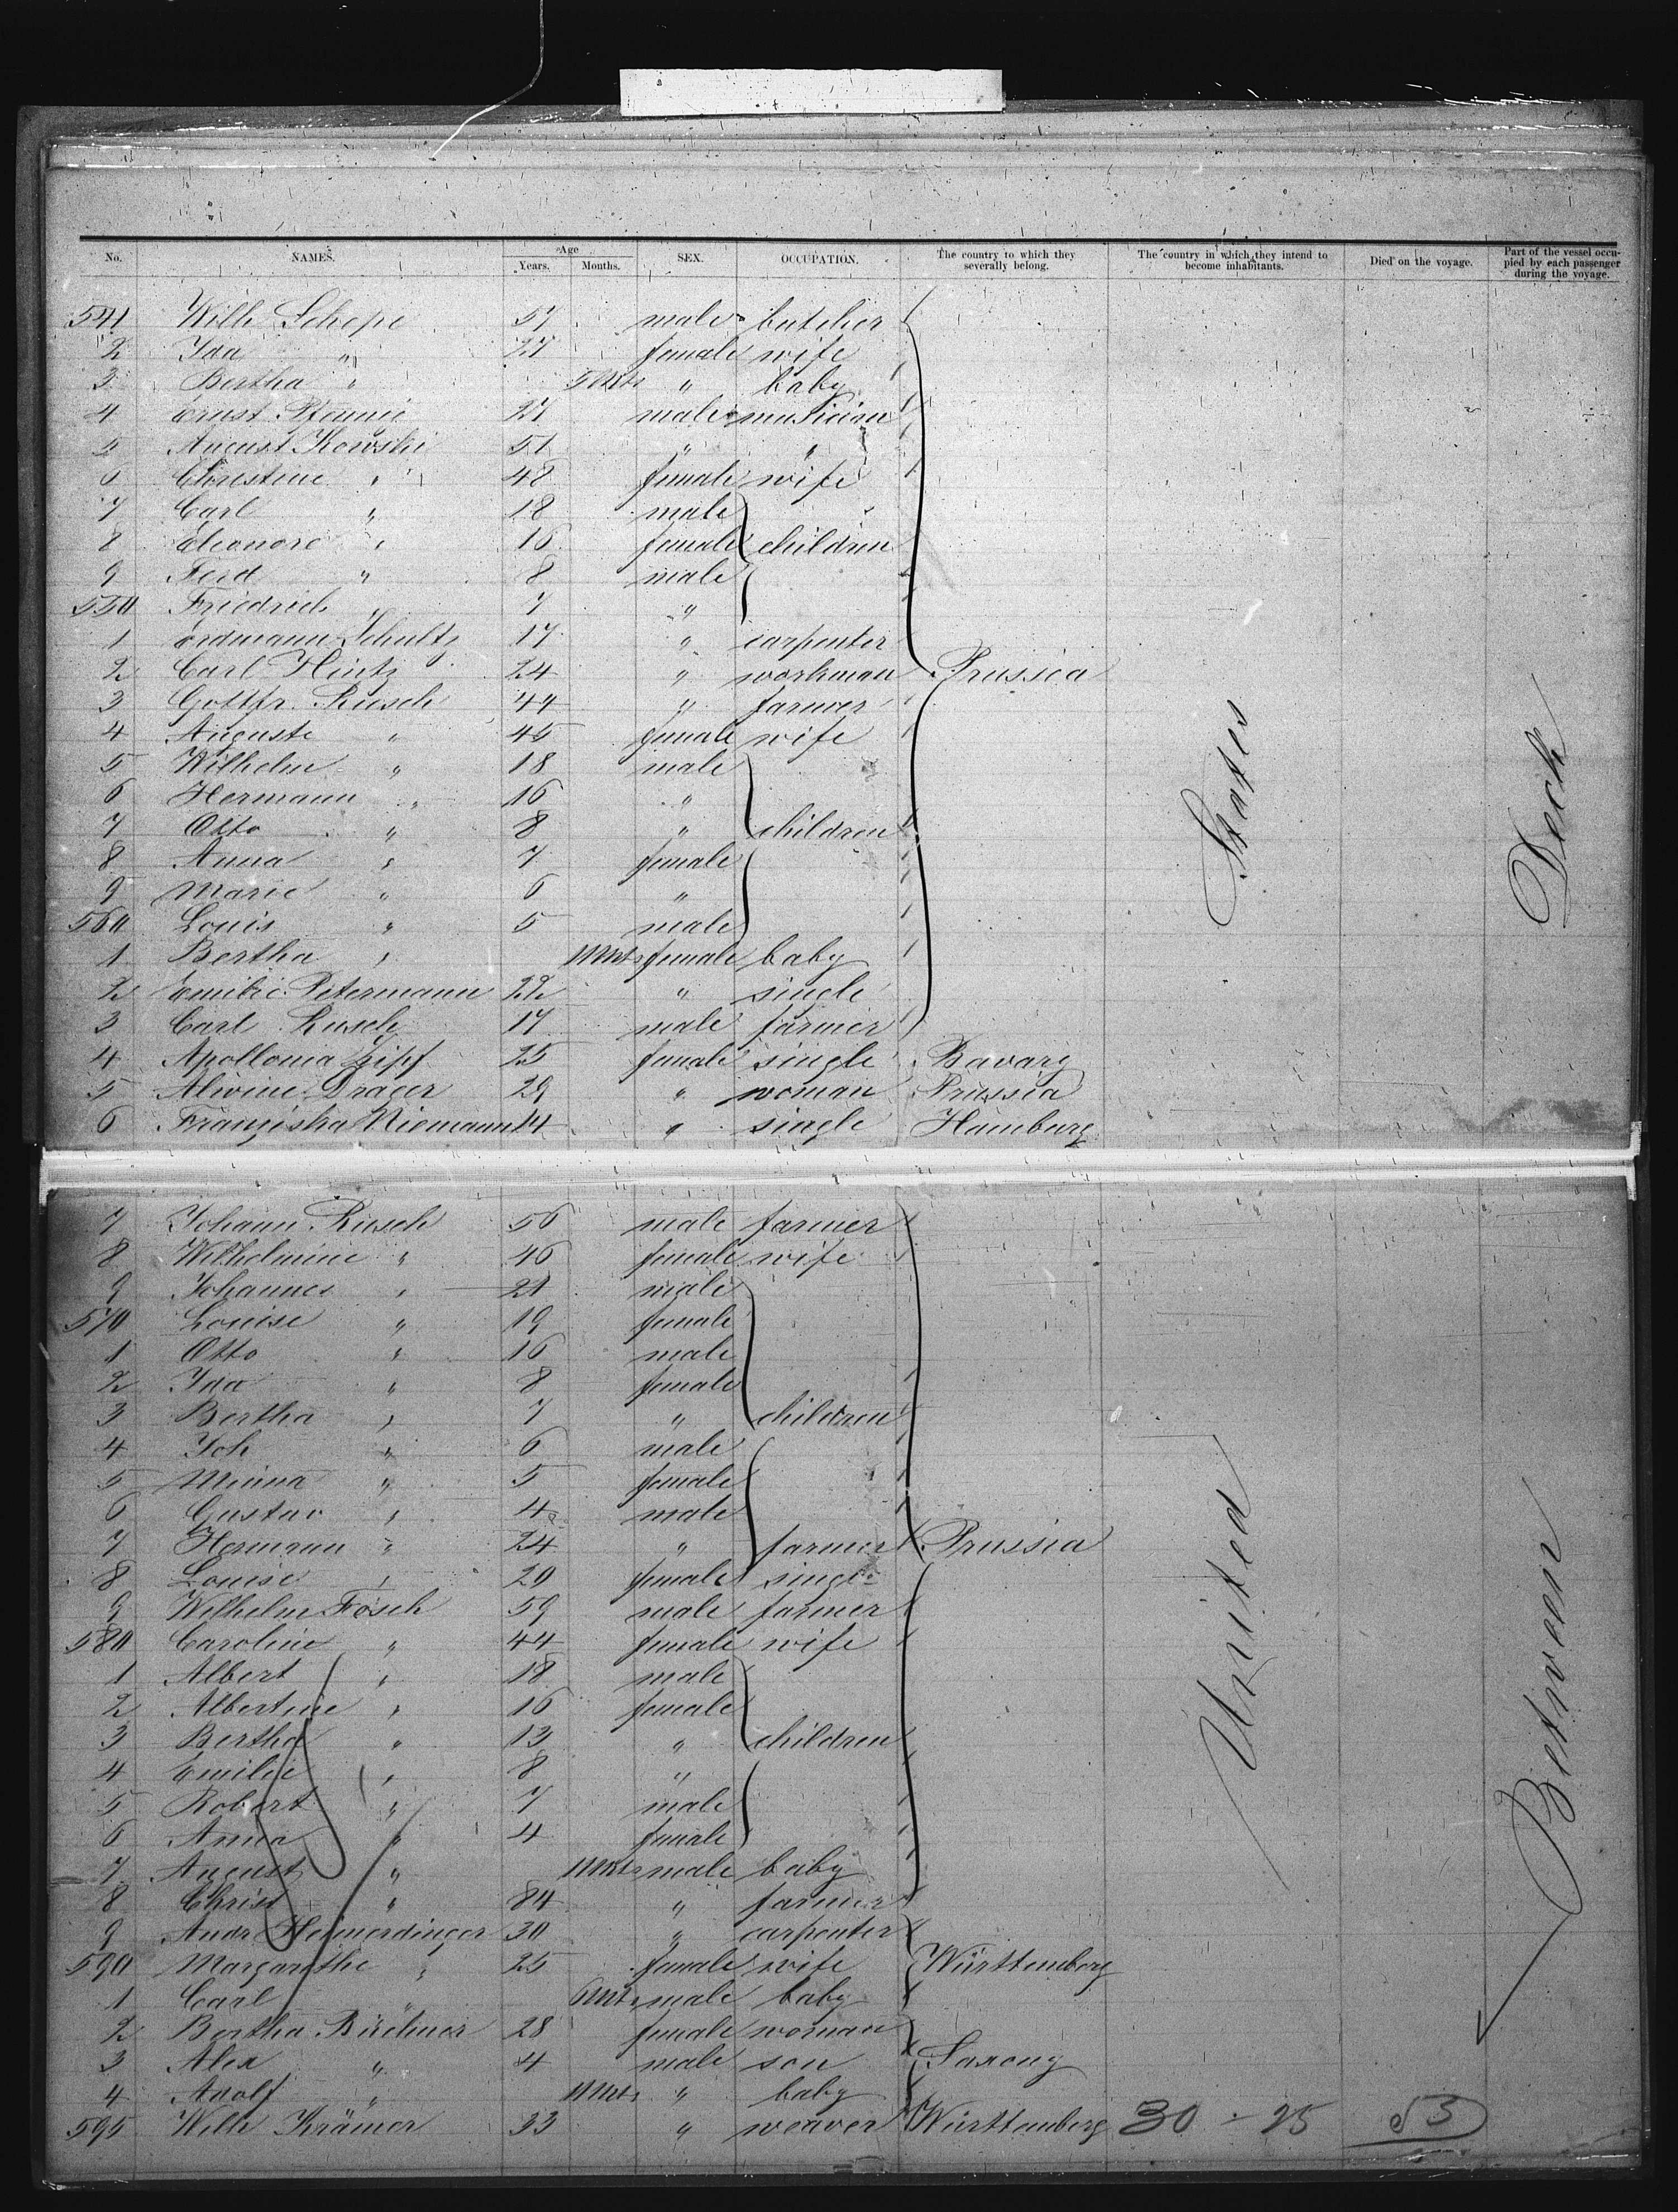 No. NAMES. Age Years. Months. SEX. OCCUPATION. The country to which they severally belong. The country in which they intend to become inhabitants. Died on the voyage. Part of the vessel occupied by each passenger during the voyage.
541 Wilh Schepe 57 male butcher
2 Ida " 27 female wife
3 Bertha " 5 Mts " baby
4 Ernst 27 male musician
5 August Kowski 51 " "
6 Christine " 48 female wife
7 Carl " 18 male
8 Eleonore " 16 female children
9 Ferd " 8 male
550 Friedrich " 7 "
1 Erdmann Schultz 17 " carpenter
2 Carl Hintz 24 " workman Prussia
3 Gottfr. Rusch 44 " farmer
4 Auguste " 45 female wife
5 Wilhelm " 18 male
6 Hermann " 16 "
7 Otto " 8 " children
8 Anna " 7 female
9 Marie " 6 "
560 Louis " 5 male
1 Bertha " 11 Mts female baby
2 Emilie Petermann 22 " single
3 Carl Rusch 17 male farmer
4 Apollonia Zipf 25 female single Bavary
5 Alwine Drager 29 " woman Prussia
6 Franziska Niemann 14 " single Hamburg
States
Deck
7 Johann Rusch 56 male farmer
8 Wilhelmine " 46 female wife
9 Johannes " 21 male
570 Louise " 19 female
1 Otto " 16 male
2 Ida " 8 female
3 Bertha " 7 " children
4 Joh " 6 male
5 Minna " 5 female
6 Gustav " 4 male
7 Hermann " 24 " farmer Prussia
8 Louise " 20 female single
9 Wilhelm Fosch 59 male farmer
580 Caroline " 44 female wife
1 Albert " 18 male
2 Albertine " 16 female
3 Bertha " 13 " children
4 Emilie " 8 "
5 Robert " 7 male
6 Anna " 4 female
7 August " 11 Mts male baby
8 Christ " 84 " farmer
9 Andr Heimerdinger 30 " carpenter
590 Margarethe " 25 female wife Württemberg
1 Carl " 6 Mts male baby
2 Bertha Büchner 28 female woman
3 Alex " 4 male son Saxony
4 Adolf " 11 Mts " baby
595 Wilh Krämer 33 " weaver Württemberg 30 - 25 53
United
Between